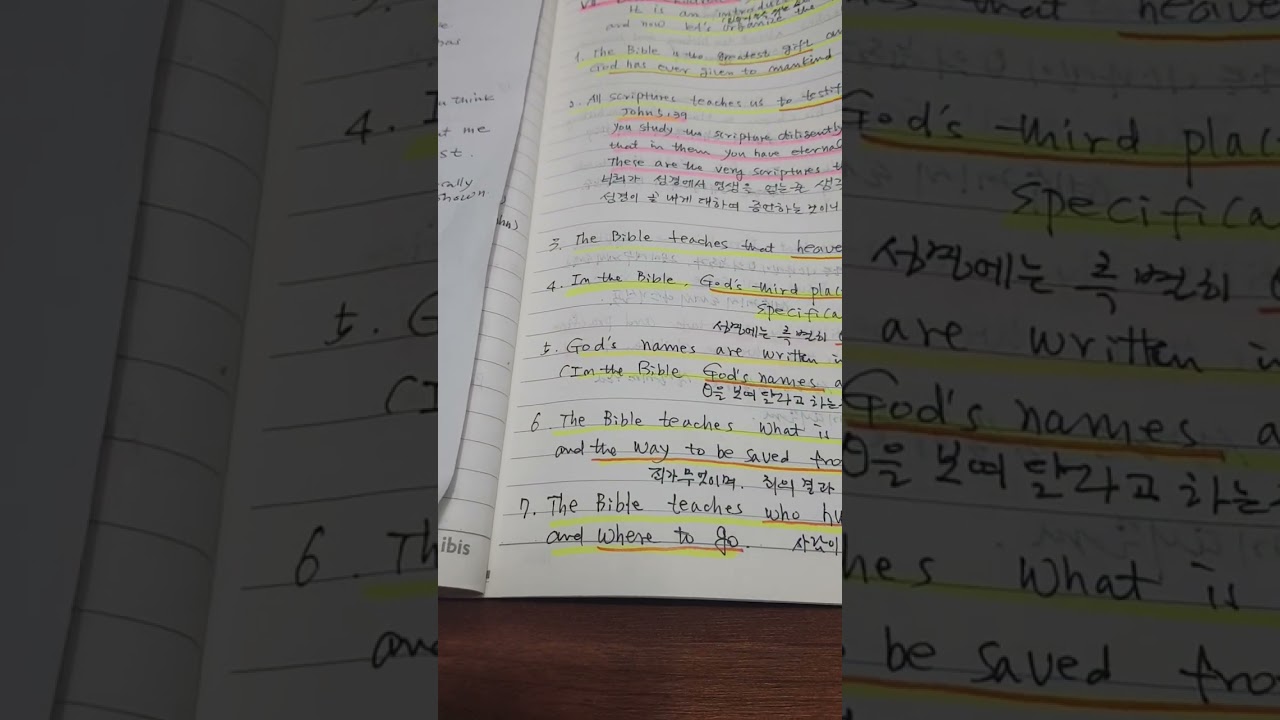 He is an introduc
and how
1. The Bible is the greatest gift
God has ever given to mankind
2. All scriptures teaches us to testif
John 5:39
You study the scripture diligently
that in them you have eternal
These are the very scriptures t
너희가 성경에서 영생을 얻는줄 생각
성경이 곧 내게 대하여 증언하는 것이니
3. The Bible teaches that heave
4. In the Bible, God's third plac
specifica
성경에는 특별히
5. God's names are written i
(In the Bible God's names a
을 보여 달라고 하는
6. The Bible teaches what is
and the way to be saved fro
죄가 무엇이며, 죄의 결과
7. The Bible teaches who hu
and where to go. 사람이
think
at me
st.
cally
shown
ibis